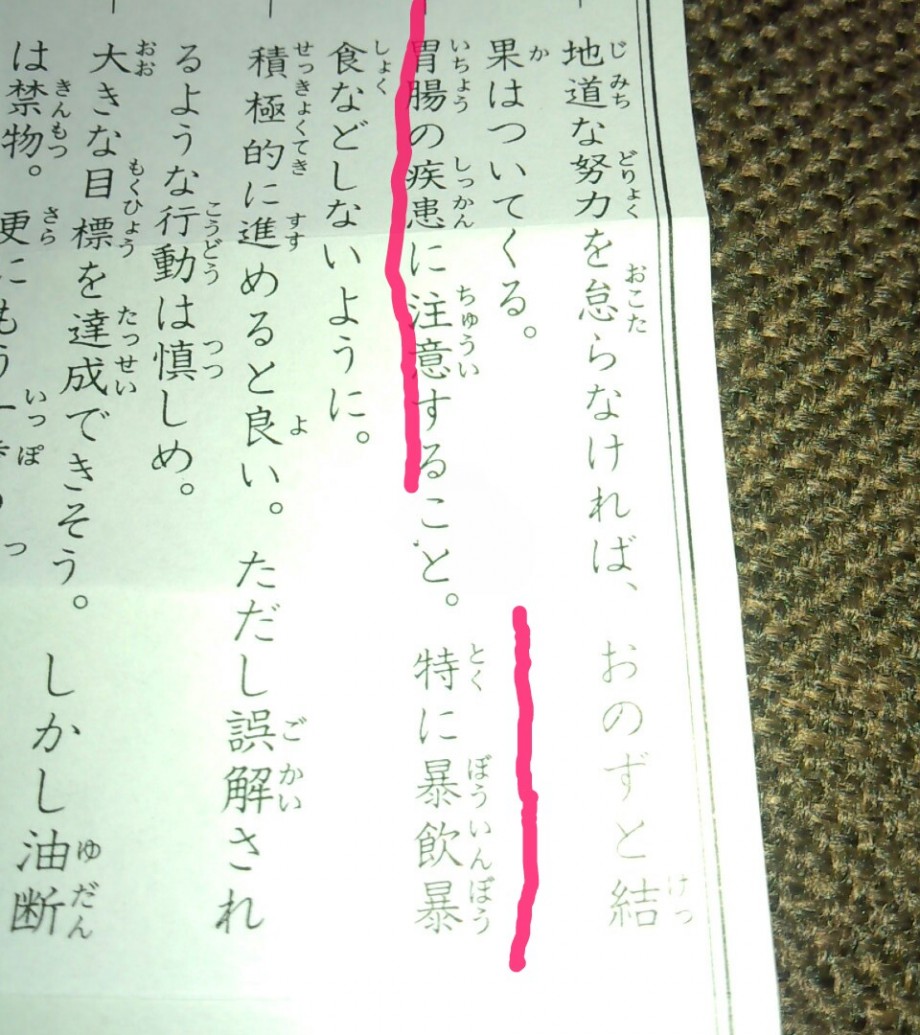 地道な努力を怠らなければ、おのずと結
果はついてくる。
胃腸の疾患に注意すること。特に暴飲暴
食などしないように。
積極的に進めると良い。ただし誤解され
るような行動は慎しめ。
大きな目標を達成できそう。しかし油断
は禁物。更にもう一